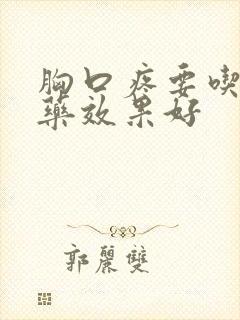 胸口疼要喫
藥效果好
郭麗雙